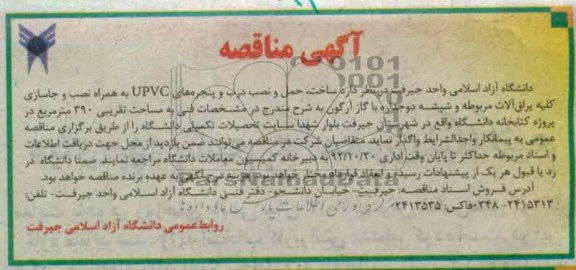 آگهی مناقصه
دانشگاه آزاد اسلامی واحد جیرفت در نظر دارد ساخت، حمل و نصب درب و پنجره‌های UPVC به همراه نصب و جاسازی
کلیه یراق‌آلات مربوطه و شیشه دوجداره با گاز آرگون به شرح مندرج در مشخصات فنی به مساحت تقریبی ۳۹۰ مترمربع در
پروژه کتابخانه دانشگاه واقع در شهرستان جیرفت بلوار شهدا سایت تحصیلات تکمیلی دانشگاه را از طریق برگزاری مناقصه
عمومی به پیمانکار واجدالشرایط واگذار نماید. متقاضیان شرکت در مناقصه می‌توانند ضمن بازدید از محل جهت دریافت اطلاعات
و اسناد مربوطه حداکثر تا پایان وقت اداری ۹۲/۱۰/۳۰ به دبیرخانه کمیسیون معاملات دانشگاه مراجعه نمایند. ضمنا دانشگاه در
رد یا قبول هر یک از پیشنهادات رسیده و انعقاد قرارداد مختار خواهد بود. هزینه درج آگهی به عهده برنده مناقصه خواهد بود.
آدرس فروش اسناد مناقصه: جیرفت- خیابان دانشجو- دفتر فنی دانشگاه آزاد اسلامی واحد جیرفت- تلفن:
۲۴۱۵۳۱۳- ۰۳۴۸ فاکس: ۲۴۱۳۵۳۵
روابط عمومی دانشگاه آزاد اسلامی جیرفت
ParsNamadData